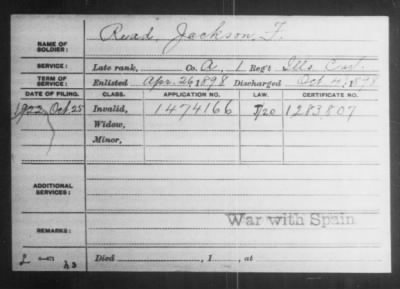 NAME OF SOLDIER: Read, Jackson, F.
SERVICE: Late rank, Co. A, 1 Reg't Ills. Cav.
TERM OF SERVICE: Enlisted Apr. 26, 1898 Discharged Oct. 1898
DATE OF FILING. CLASS. APPLICATION NO. LAW. CERTIFICATE NO.
1922, Oct. 25 Invalid, 1474166 1283807
Widow,
Minor,
ADDITIONAL SERVICES:
War with Spain
REMARKS:
Died , 1 , at